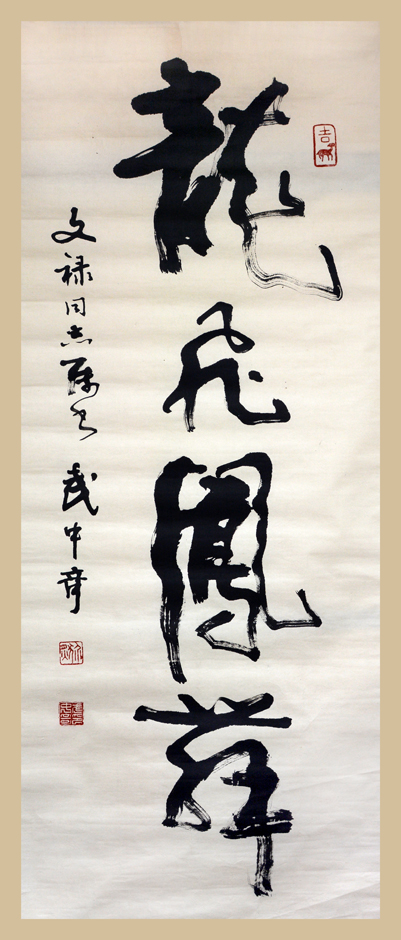 龍飛鳳舞
文禄同志属书 武中奇
吉